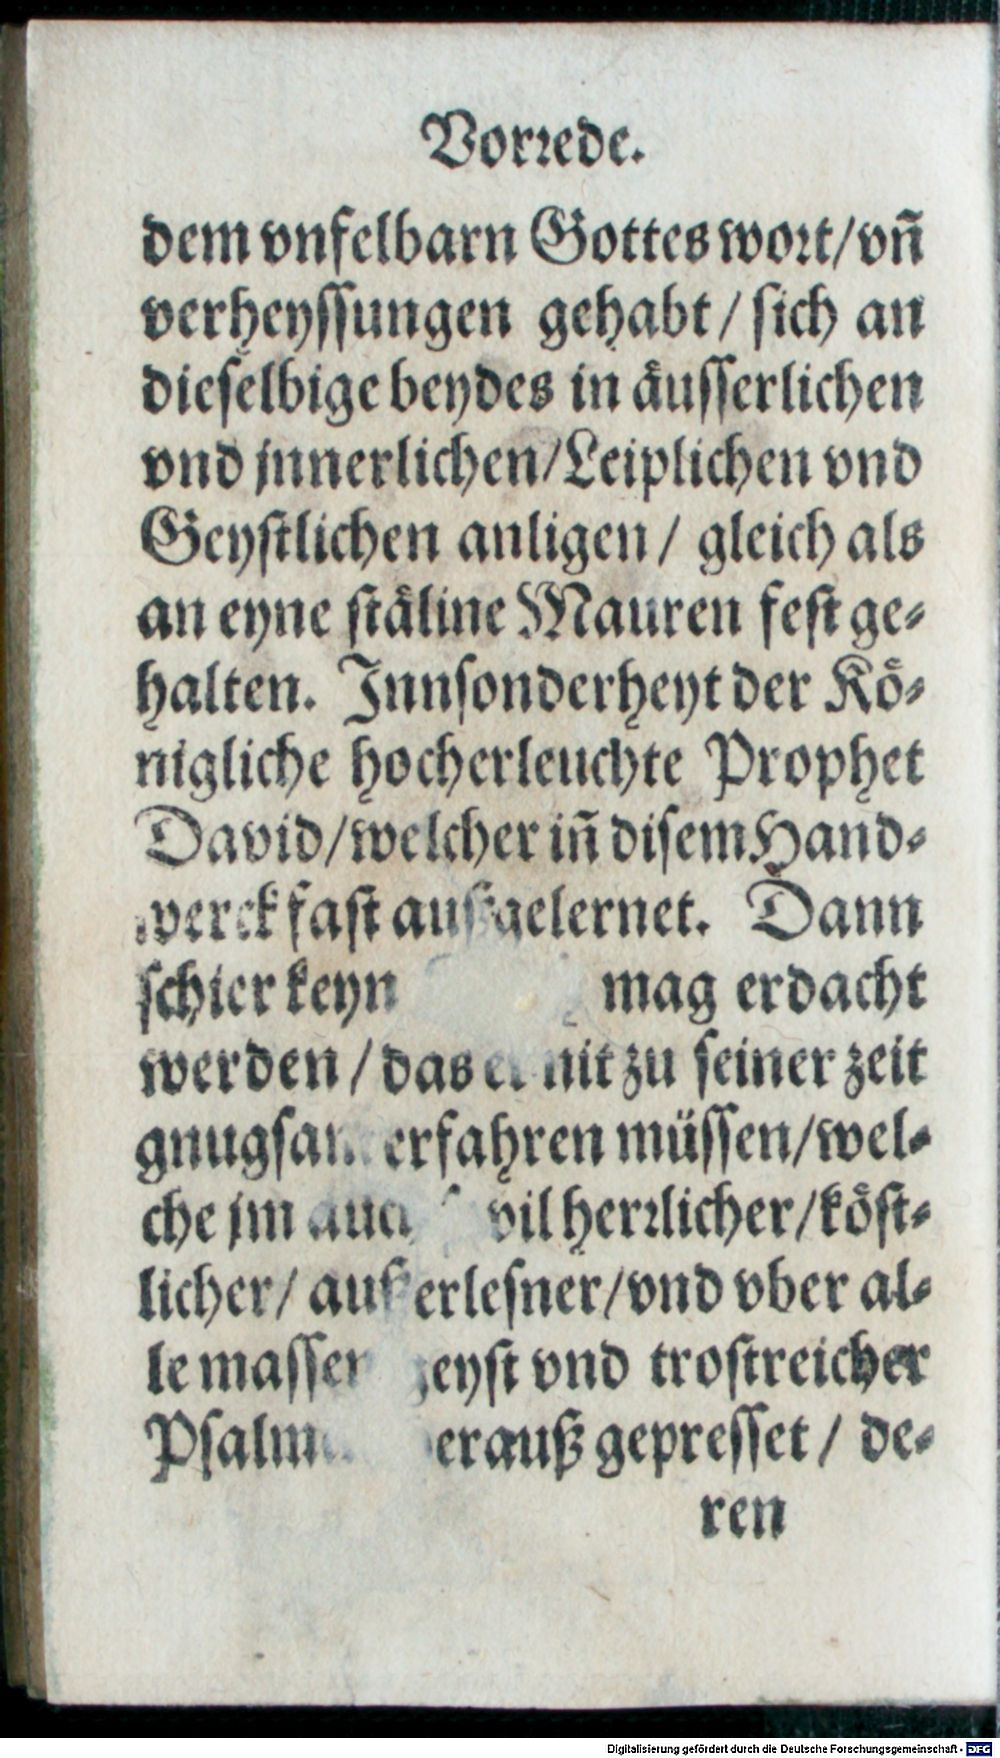 Vorrede.
dem vnfelbarn Gottes wort/vñ
verheyssungen gehabt/sich an
dieselbige beydes in äusserlichen
vnd jnnerlichen/Leiplichen vnd
Geystlichen anligen/ gleich als
an eyne stäline Mauren fest ge-
halten. Innsonderheyt der Kö-
nigliche hocherleuchte Prophet
David/welcher iñ disem Hand-
werck fast außgelernet. Dann
schier keyn mag erdacht
werden/das er nit zu seiner zeit
gnugsam erfahren müssen/wel-
che jm vil herrlicher/köst-
licher/ außerlesner/vnd vber al-
le massen geyst vnd trostreicher
gepresset/ de-
ren
Digitalisierung gefördert durch die Deutsche Forschungsgemeinschaft - DFG